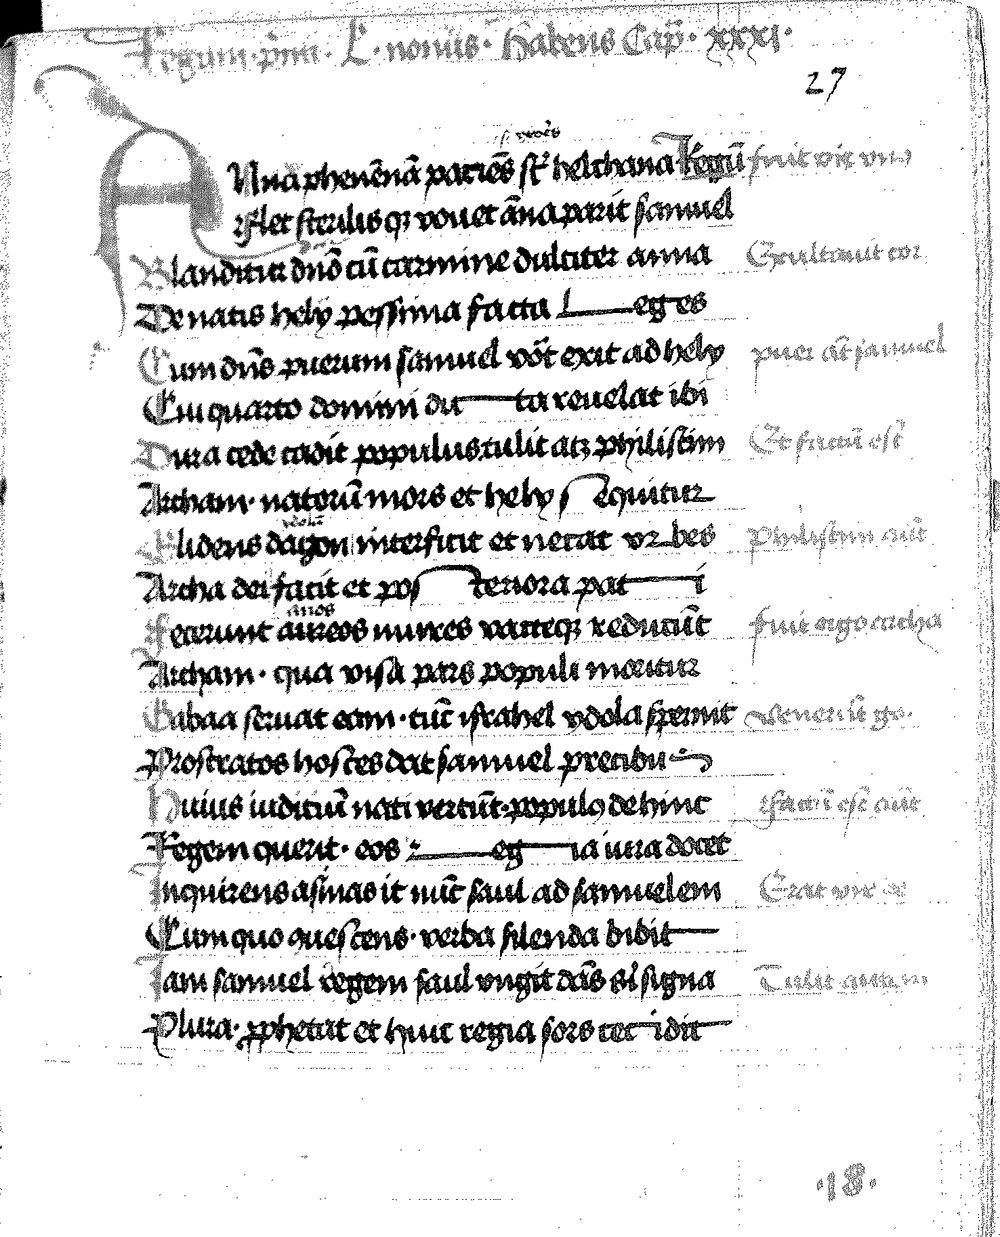 Regum · p̄mi · L · nonus · Habens Cap̄ · xxxi ·
27
s. vxōēs
ANna phenēnā patiēs st̄ helchana Regū fuit vir vnꝰ
Flet sterilis qꝫ vouet āna parit samuel
Blanditur dn̄o cū carmine dulciter anna Exultauit cor
De natis hely pessima facta l eg es
Cum dn̄s puerum samuel vōt exit ad hely puer āt samuel
Cui quarto domini di ta reuelat ibi
Dura cede cadit populus tulit atqꝫ philistim Et factū est̄
Archam · natorū mors et hely s equitur
ydolū
Elidens dagon interficit et necat vr bes Philistim aūt
Archa dei facit et pos teriora pat i
anos
Fecerunt aureos mures vacceqꝫ reducūt fuit ergo archa
Archam · qua visa pars populi moritur
Gabaa seruat eam · tūc israhel ydola spernit Venerūt go ·
Prostratos hostes dat samuel precibus
Huius iudiciū nati vertūt · populꝰ dehinc factū est aūt
Regem querit · eos r eg ia iura docet
Inquirens asinas it nūc saul ad samuelem Erat vir de
Cum quo quescens · verba silenda bibit
Iam samuel regem saul vngit dās si signa Tulit autem
Plura · ꝓphetat et huic regia sors cec idit
· 18 ·